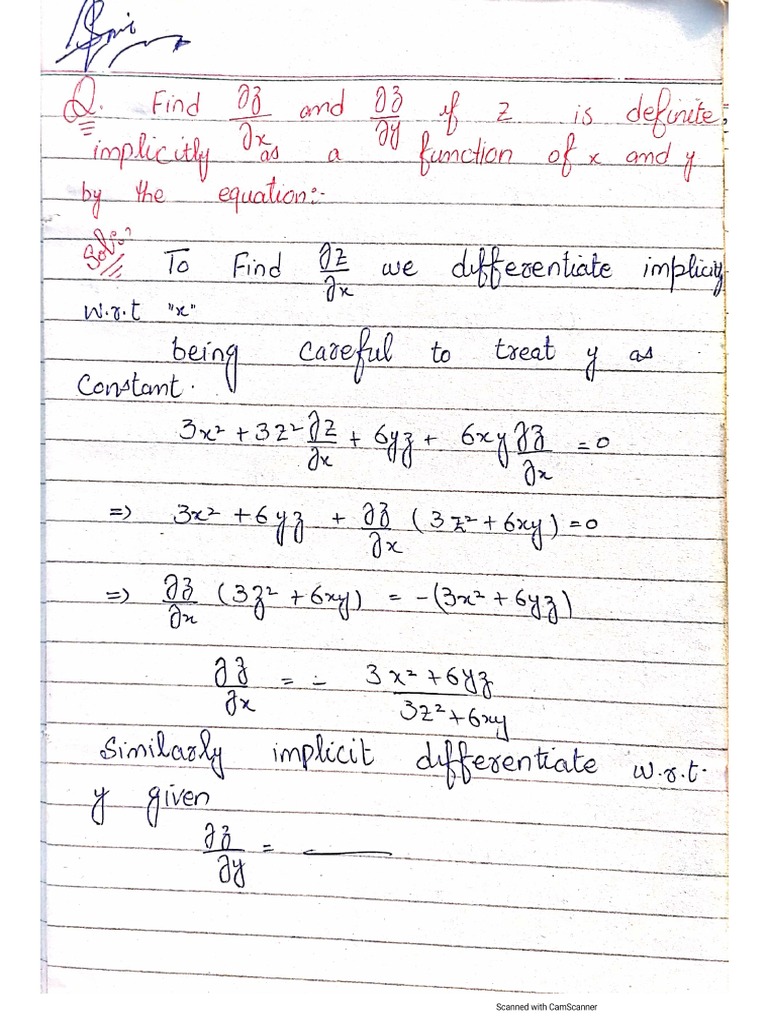 Q. Find ∂z/∂x and ∂z/∂y if z is definite,
implicitly as a function of x and y
by the equation:-
Solu:
To Find ∂z/∂x we differentiate implicity
w.r.t "x"
being careful to treat y as
Constant.
3x² + 3z² ∂z/∂x + 6yz + 6xy ∂z/∂x = 0
=> 3x² + 6yz + ∂z/∂x (3z² + 6xy) = 0
=> ∂z/∂x (3z² + 6xy) = -(3x² + 6yz)
∂z/∂x = - 3x² + 6yz / 3z² + 6xy
Similarly implicit differentiate w.r.t.
y given
∂z/∂y = ———
Scanned with CamScanner